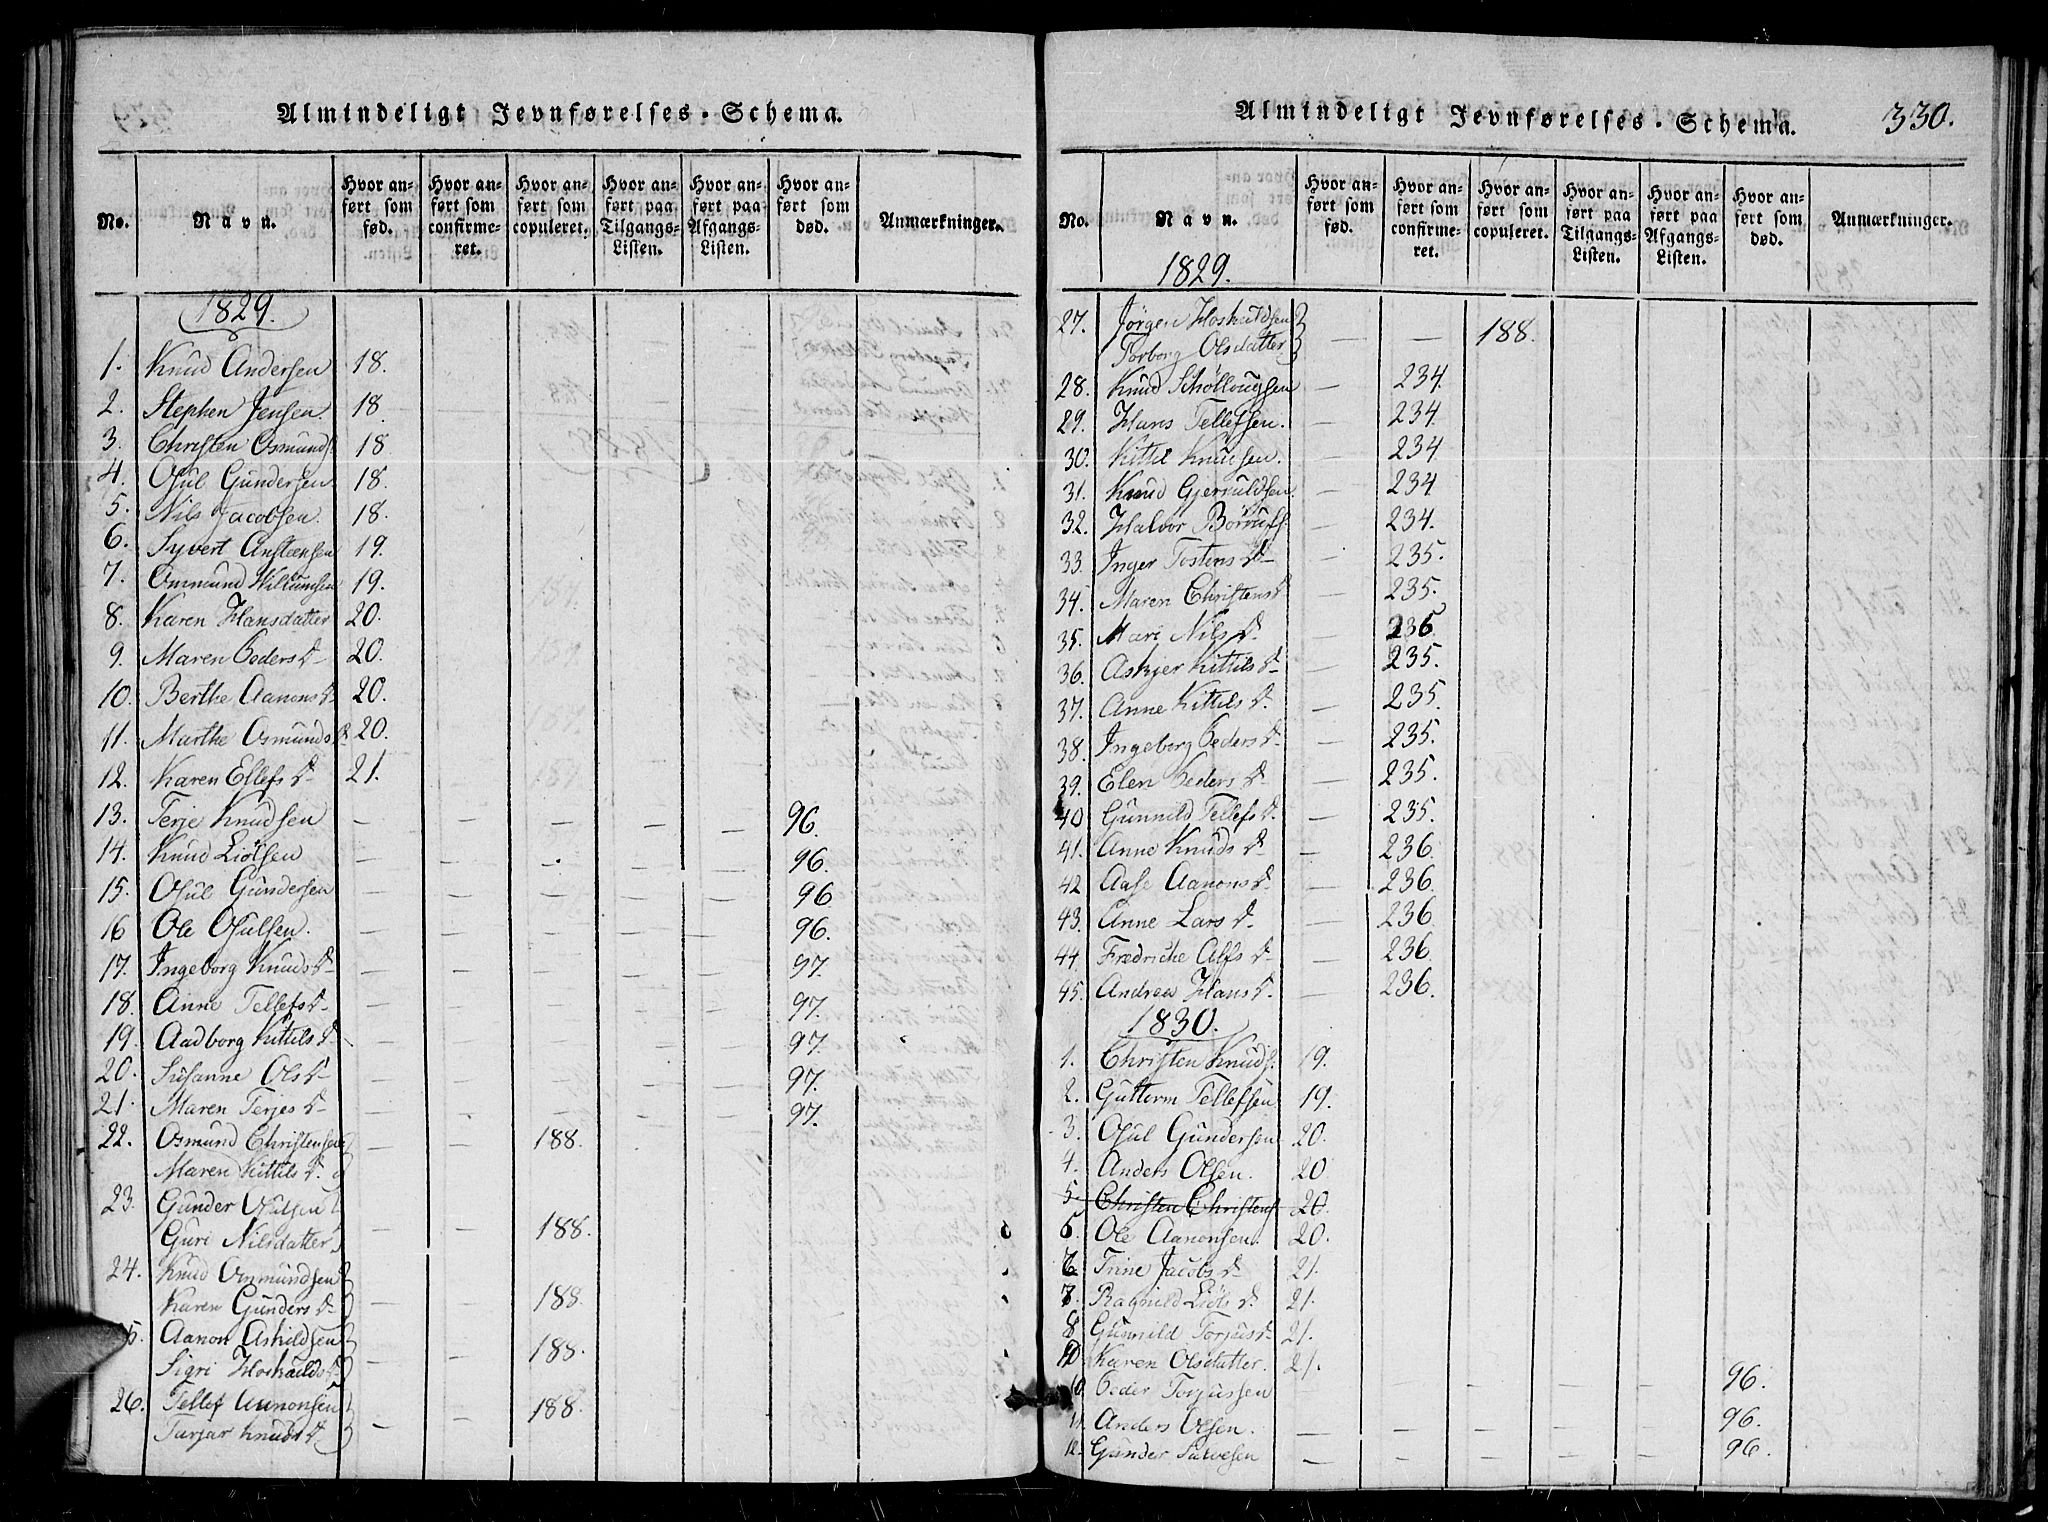 Almindeligt Jevnførelses-Schema.
No. Navn. Hvor anført som fød. Hvor anført som confirmeret. Hvor anført som copuleret. Hvor anført paa Tilgangs-Listen. Hvor anført paa Afgangs-Listen. Hvor anført som død. Anmærkninger.
1829.
1. Knud Andersen 18.
2. Stephen Jensen. 18.
3. Christen Osmunds. 18
4. Osul Gundersen 18.
5. Nils Jacobsen. 18.
6. Syvert Ansteensen 19.
7. Ommund Willumsen 19.
8. Karen Hansdatter 20.
9. Maren Peders D 20.
10. Berthe Aanons D 20.
11. Marthe Osmunds D 20.
12. Karen Ellefs D 21.
13. Terje Knudsen — — — — — 96.
14. Knud Liøtsen — — — — — 96.
15. Osul Gundersen — — — — — 96
16 Ole Osulsen. — — — — — 96.
17. Ingeborg Knuds D — — — — — 97.
18. Anne Tellefs D — — — — — 97.
19. Aadborg Kittils D — — — — — 97.
20. Susanne Ols D — — — — — 97.
21. Maren Terjes D — — — — — 97.
22. Osmund Christensen — — 188.
Maren Kittils D
23. Gunder Osulsen
Guri Nilsdatter — — 188.
24. Knud Ommundsen
Karen Gunders D — — 188.
25. Aanon Askildsen
Sigri Hoskulds D — — 188.
26. Tellef Aanonsen — — 188.
Tarjar Knuds D
Almindeligt Jevnførelses-Schema. 330.
No. Navn. Hvor anført som fød. Hvor anført som confirmeret. Hvor anført som copuleret. Hvor anført paa Tilgangs-Listen. Hvor anført paa Afgangs-Listen. Hvor anført som død. Anmærkninger.
1829.
27. Jørgen Hoskuldsen
Torborg Olsdatter — — 188.
28. Knud Schøllougsen — 234.
29. Hans Tellefsen. — 234.
30. Kittil Knudsen. — 234
31. Knud Gjeruldsen. — 234
32. Halvor Børoufs. — 234.
33. Inger Tostens D — 235.
34. Maren Christens D — 235.
35. Mari Nils D. — 235
36. Askjer Kittils D — 235.
37. Anne Kittils D. — 235.
38. Ingeborg Peders D — 235.
39. Elen Peders D — 235.
40 Gunnild Tellefs D. — 235.
41. Anne Knuds D — 236.
42 Aase Aanons D — 236.
43. Anne Lars D — 236
44. Fredriche Alfs D — 236.
45. Andrea Hans D. — 236.
1830.
1. Christen Knuds. 19.
2. Guttorm Tellefsen 19.
3. Osul Gundersen 20.
4. Anders Olsen. 20
5. Christen Christens. 20.
5. Ole Aanonsen. 20.
6 Trine Jacobs D 21.
7. Ragnild Liøts D. 21.
8 Gunnild Torjus D 21.
9 Karen Olsdatter. 21.
10 Peder Torjussen — — — — — 96.
11. Anders Olsen. — — — — — 96.
12. Gunder Salvesen — — — — — 96.